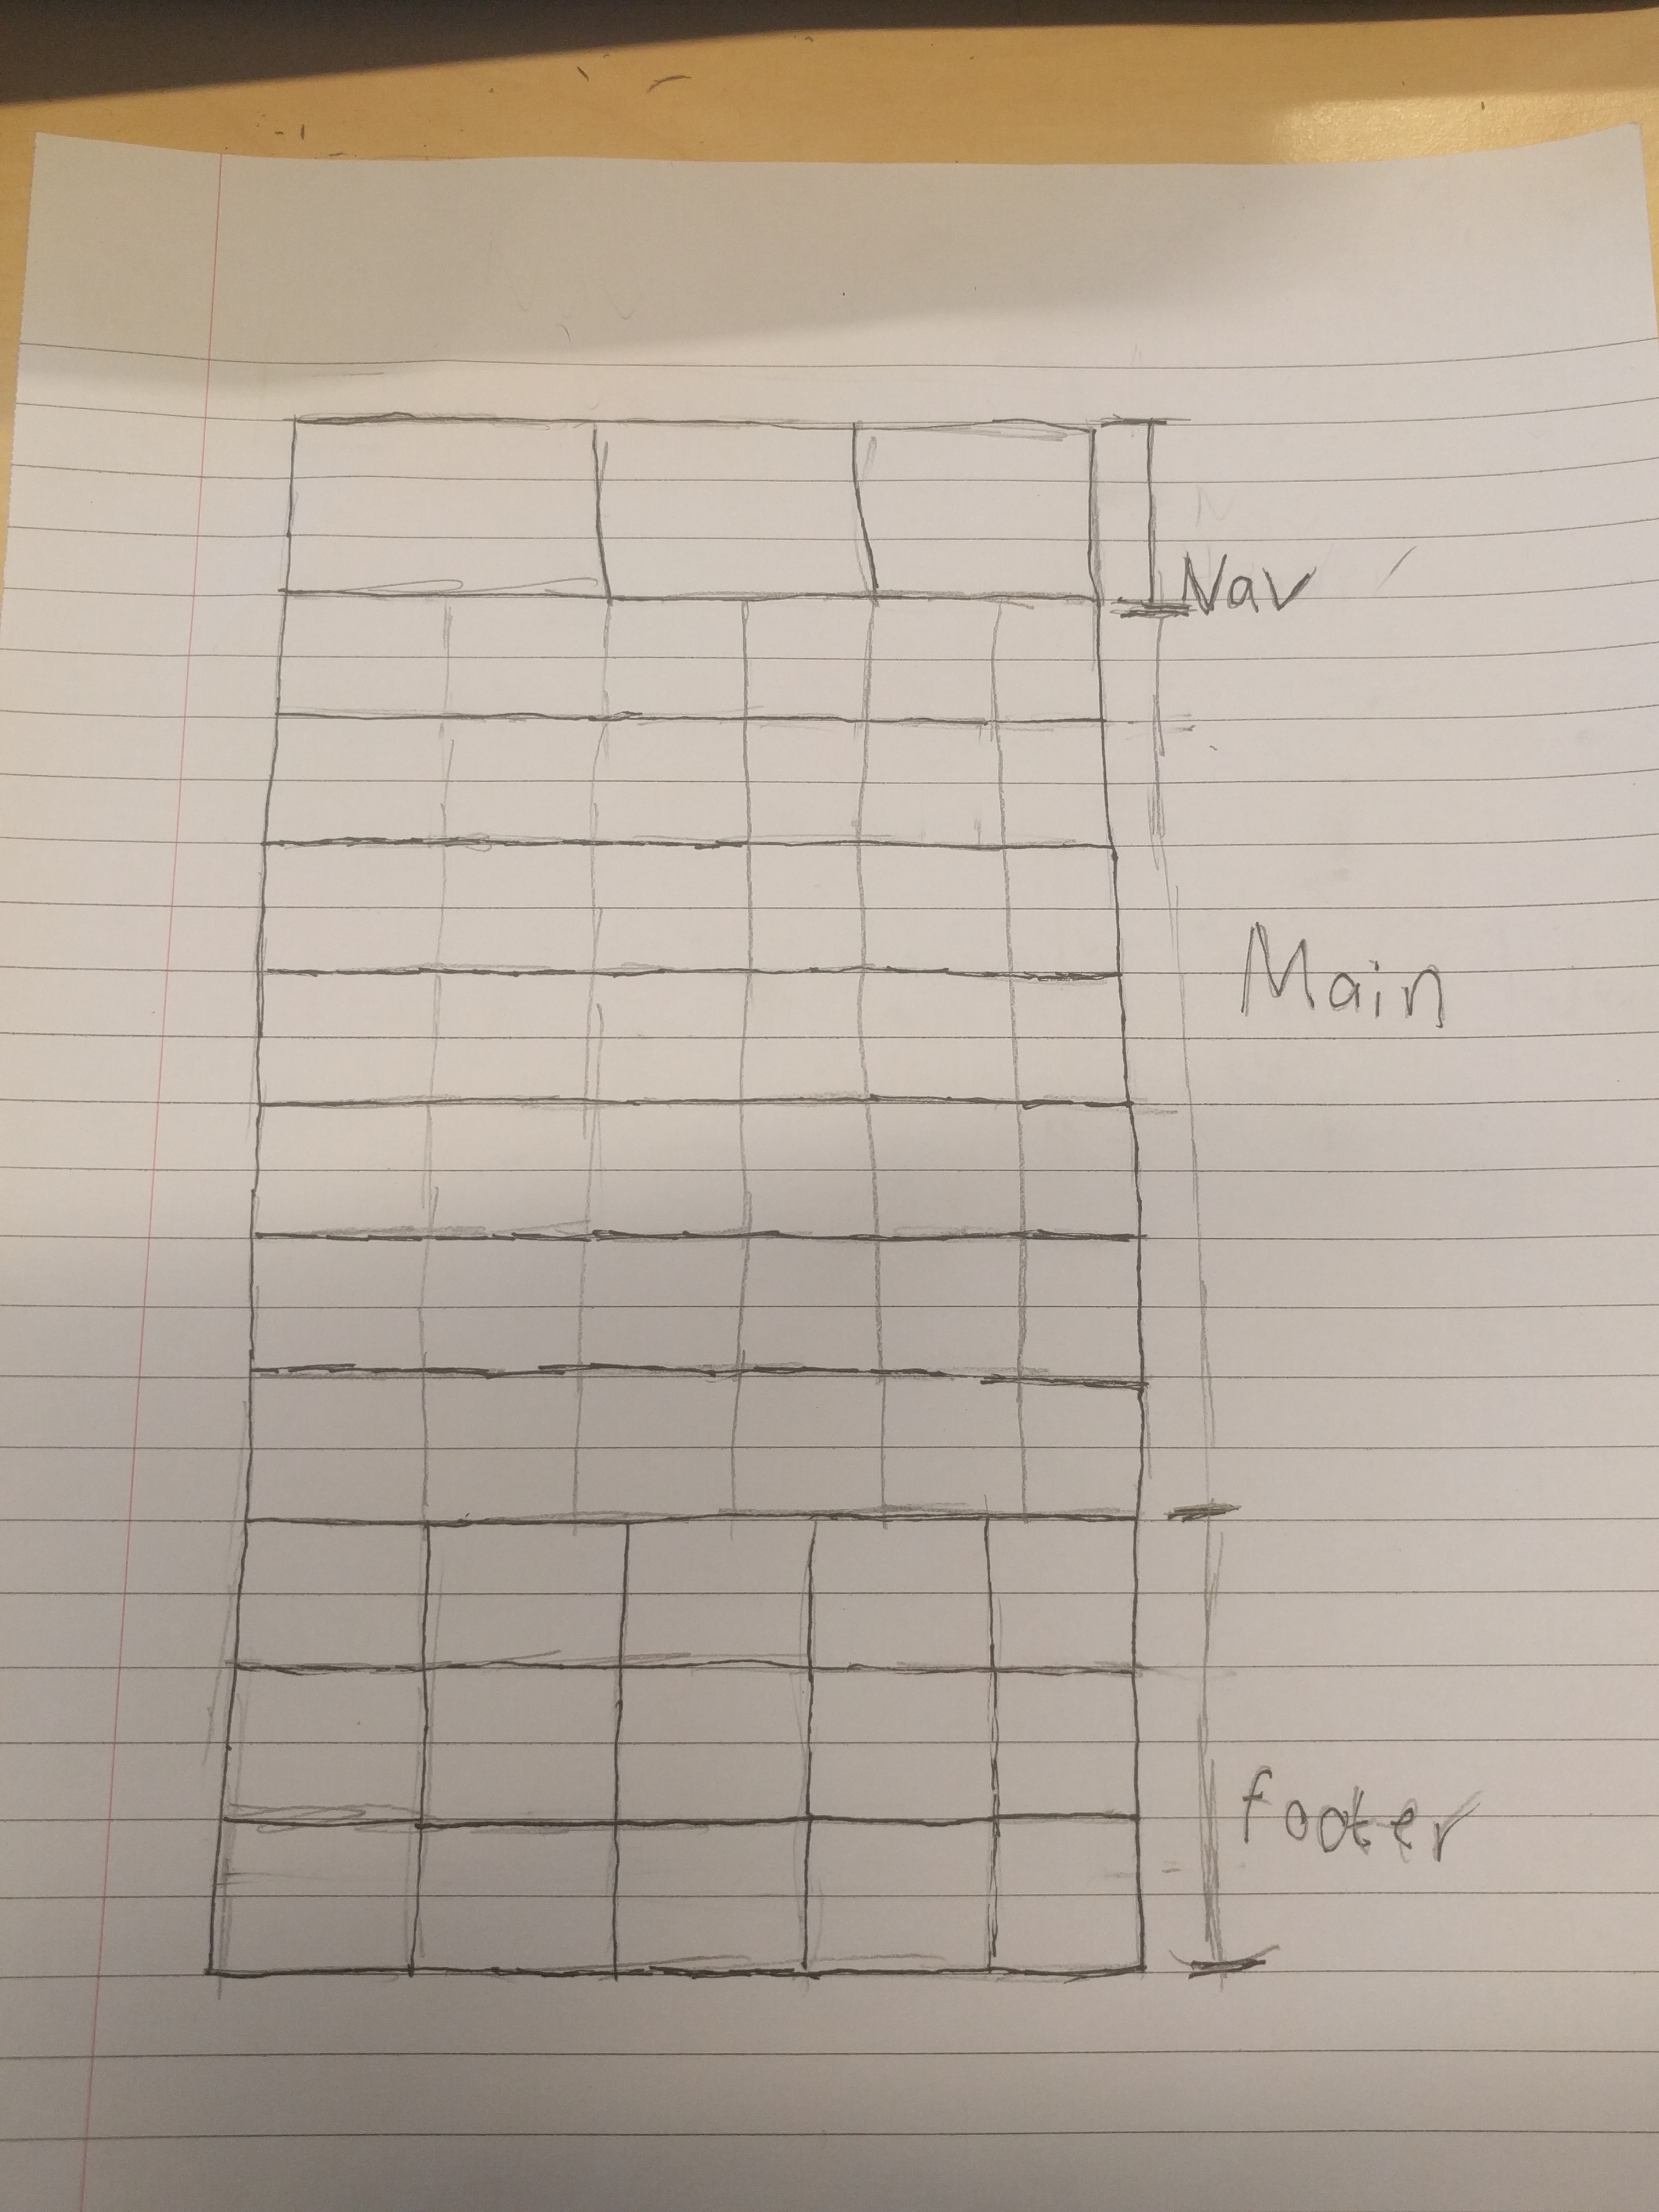 Nav
Main
footer